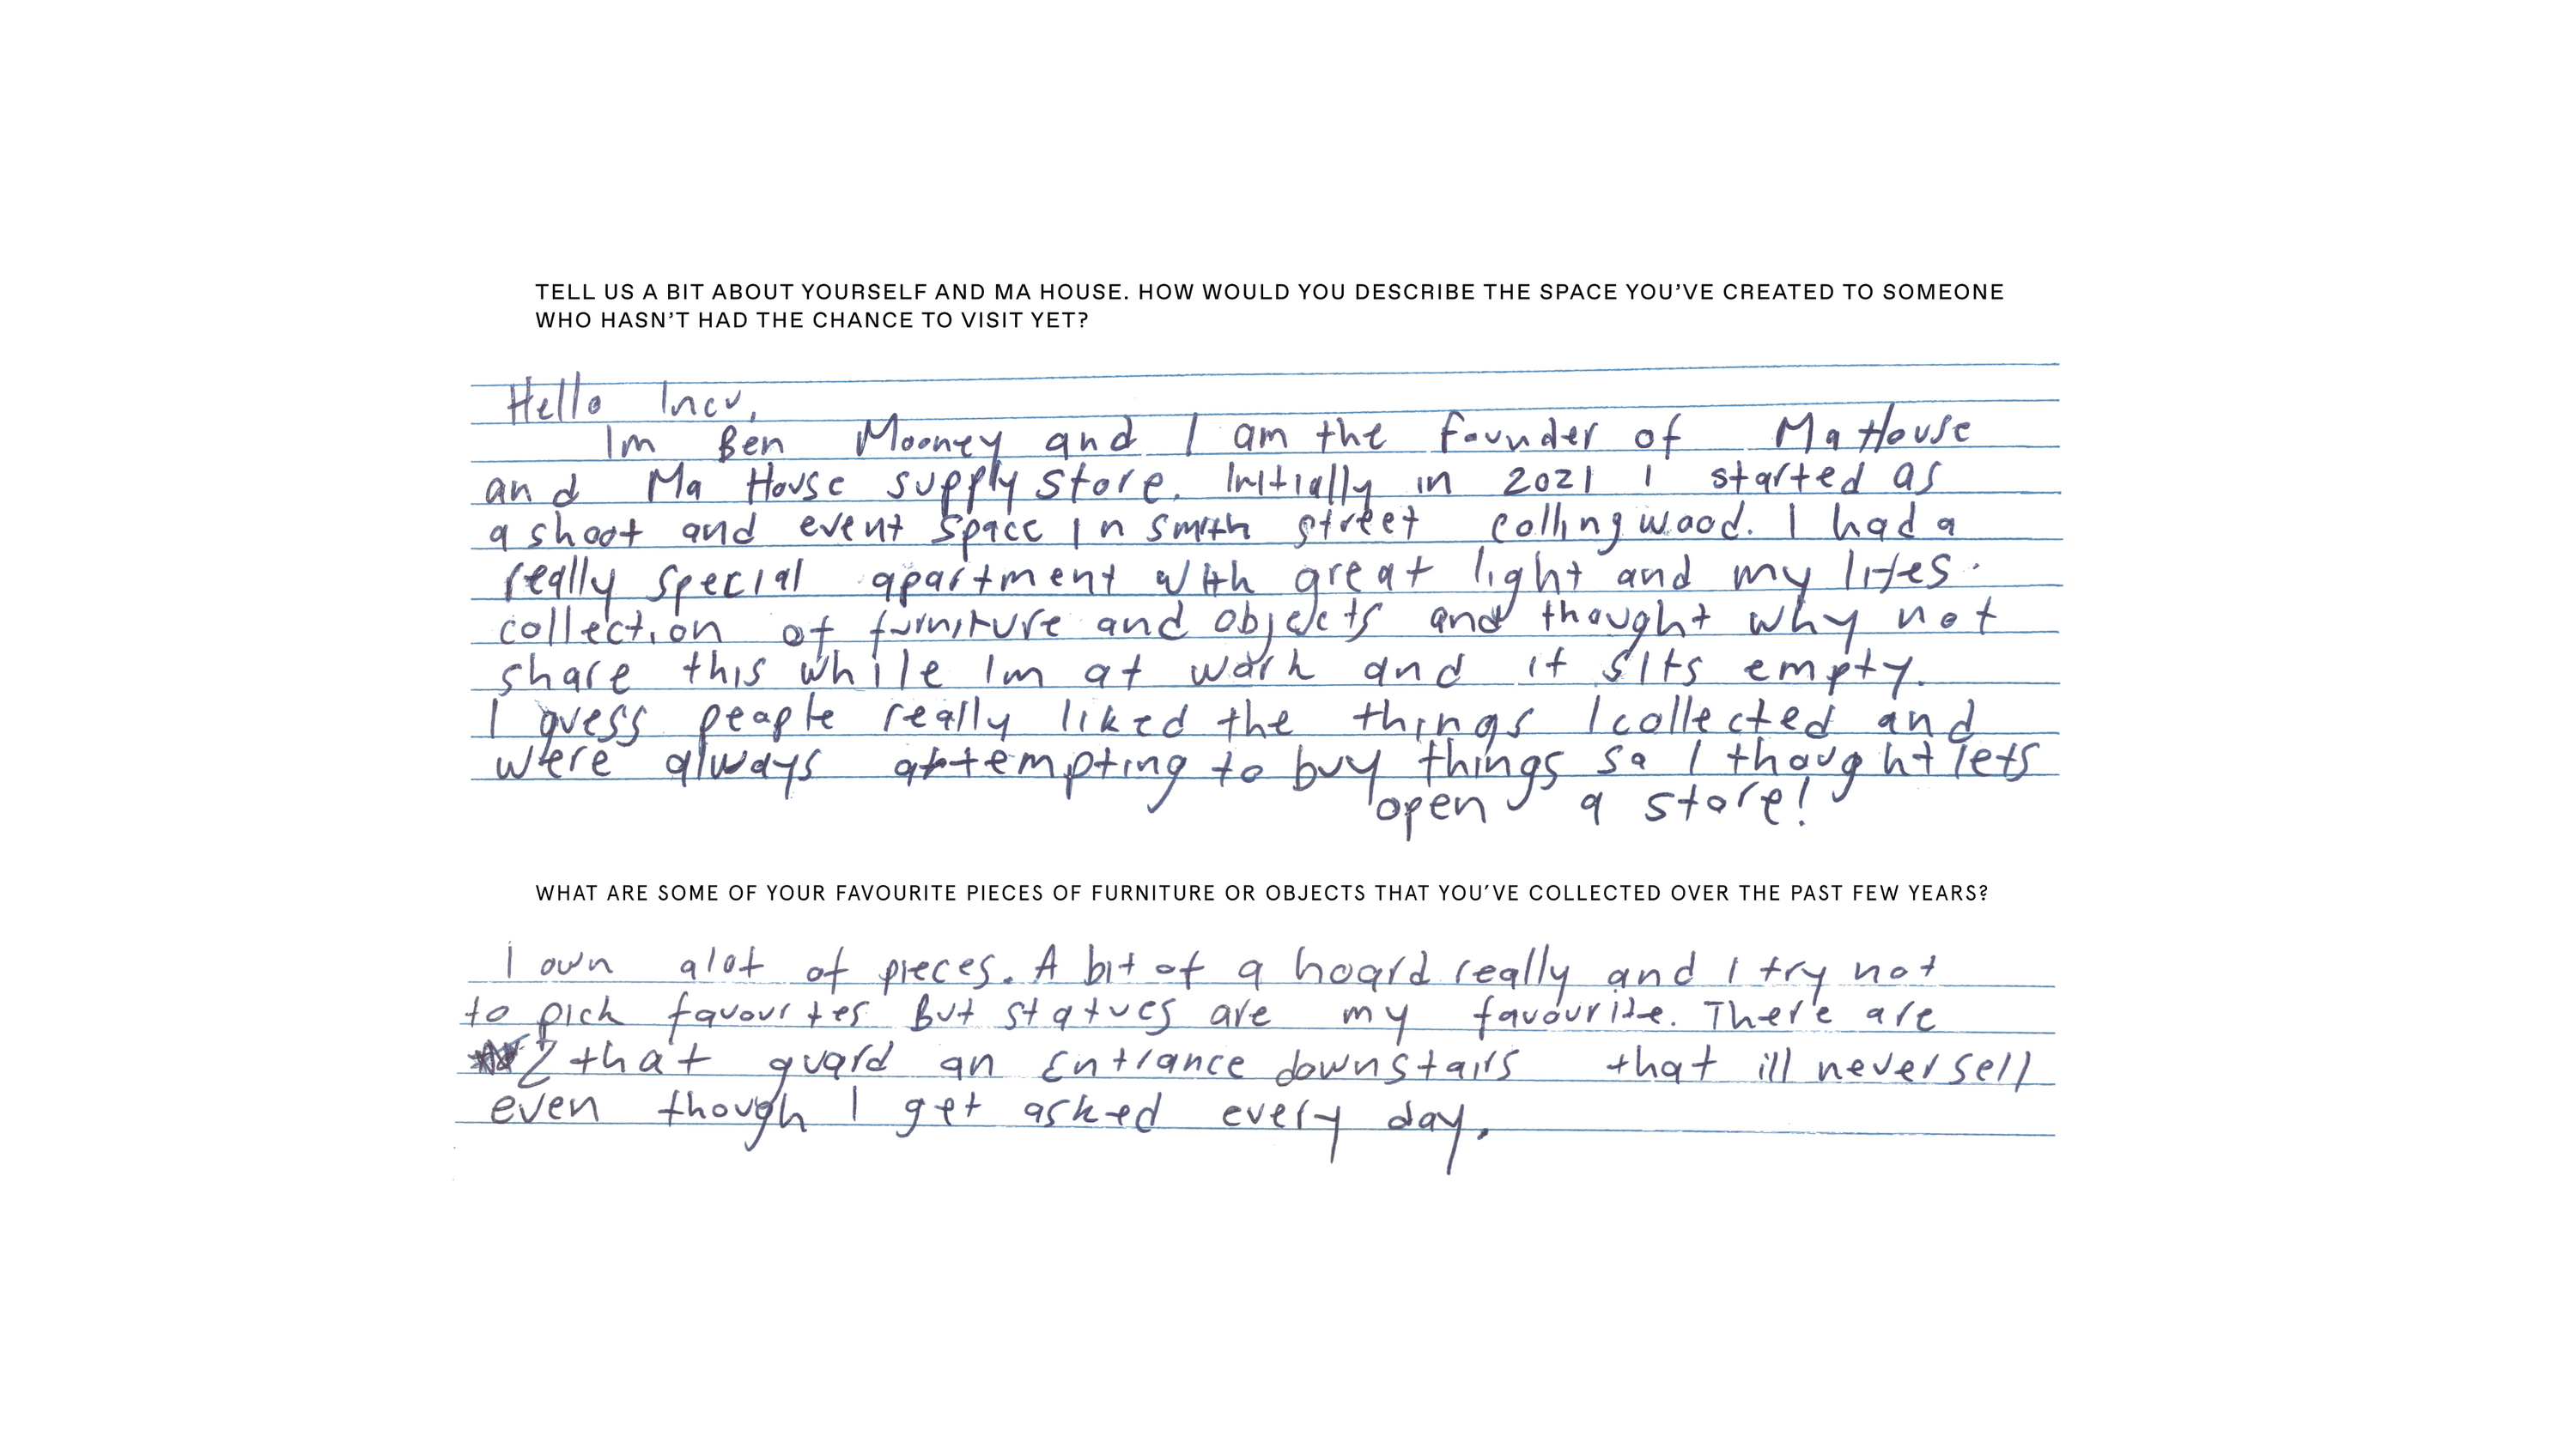 TELL US A BIT ABOUT YOURSELF AND MA HOUSE. HOW WOULD YOU DESCRIBE THE SPACE YOU'VE CREATED TO SOMEONE
WHO HASN'T HAD THE CHANCE TO VISIT YET?
Hello Incu,
Im Ben Mooney and I am the founder of Ma House
and Ma House supply store. Initially in 2021 I started as
a shoot and event space In smith street collingwood. I had a
really special apartment with great light and my lifes
collection of furniture and objects and thought why not
share this while Im at work and it sits empty.
I guess people really liked the things I collected and
were always attempting to buy things so I thought lets
open a store!
WHAT ARE SOME OF YOUR FAVOURITE PIECES OF FURNITURE OR OBJECTS THAT YOU'VE COLLECTED OVER THE PAST FEW YEARS?
I own alot of pieces. A bit of a hoard really and I try not
to pick favourites But statues are my favourite. There are
2 that guard an Entrance downstairs that ill never sell
even though I get asked every day.